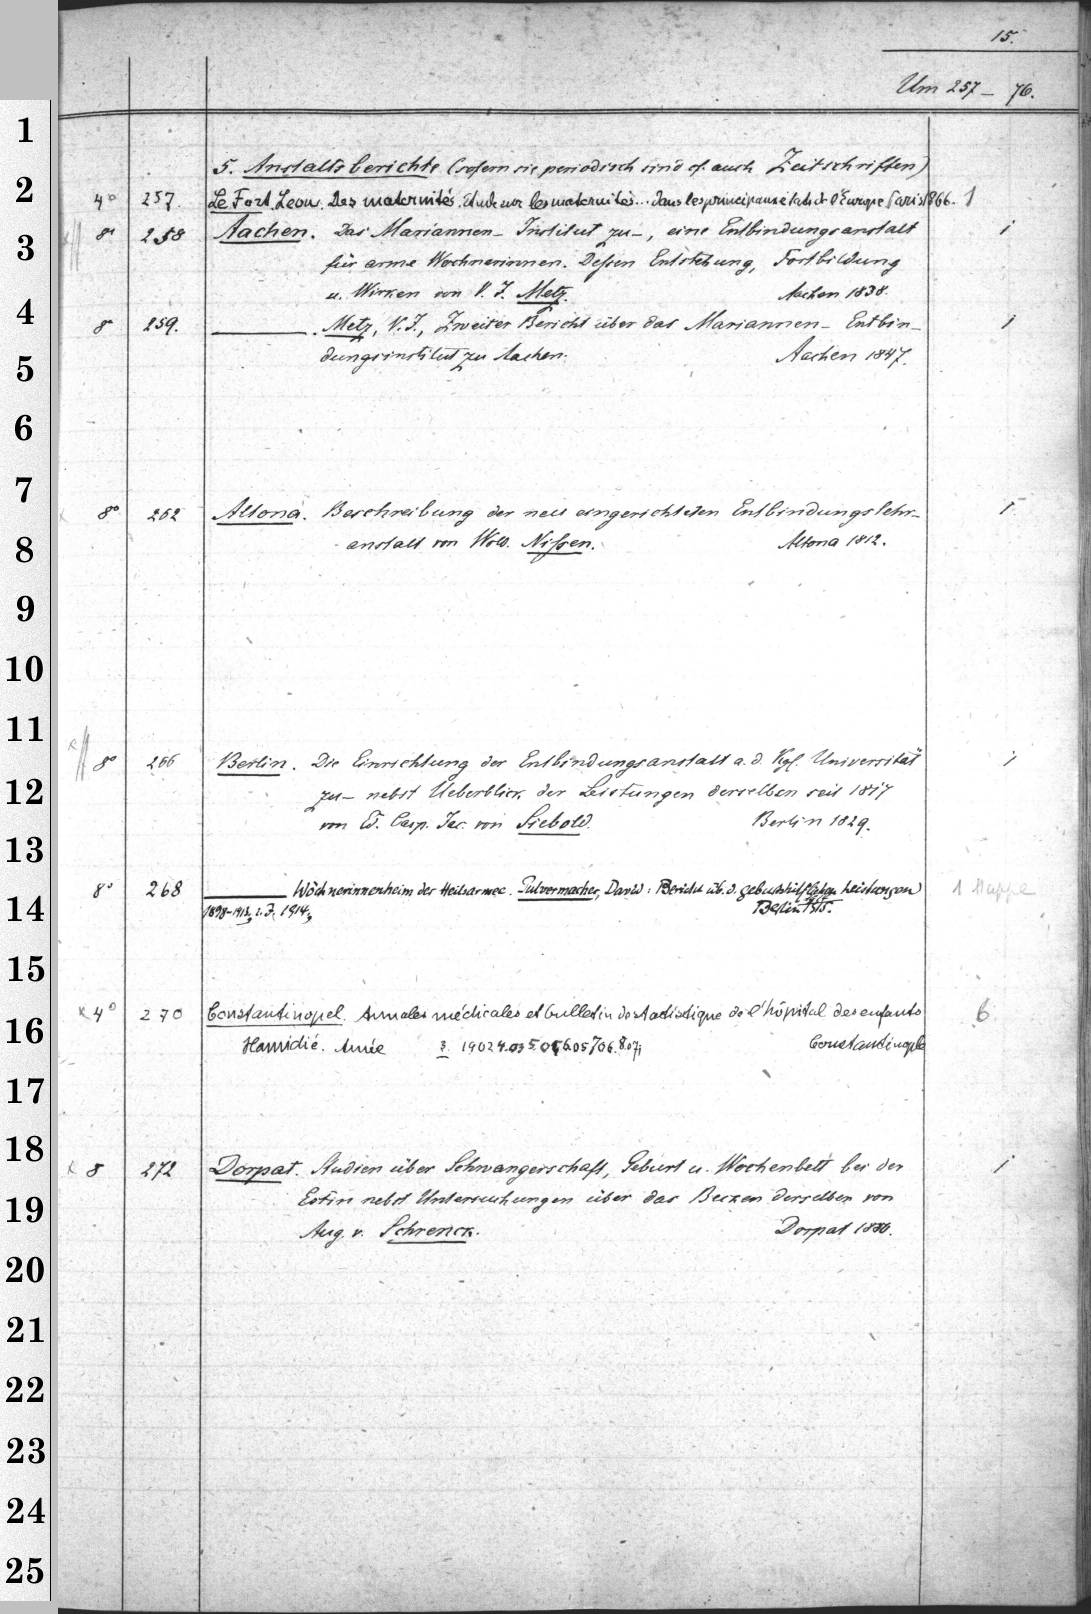 15.
Um 257 – 76.
5. Anstaltsberichte (sofern sie periodisch sind cf. auch Zeitschriften)
4° 257. Le Fort. Leon. Des maternités. Etude sur les maternités... dans les principaux états de l'Europe Paris 1866. 1
8° 258 Aachen. Das Mariannen- Institut zu –, eine Entbindungsanstalt 1
für arme Wochnerinnen. Dessen Entstehung, Fortbildung
u. Wirken von V. J. Metz. Aachen 1838.
8° 259. ——. Metz, V. J., Zweiter Bericht über das Mariannen- Entbin- 1
dungsinstitut zu Aachen. Aachen 1847.
8° 262 Altona. Beschreibung der neu eingerichteten Entbindungslehr- 1
anstalt von Wold. Nissen. Altona 1812.
8° 266 Berlin. Die Einrichtung der Entbindungsanstalt a. d. Kgl. Universität 1
zu – nebst Ueberblick der Leistungen derselben seit 1817
von Ed. Casp. Jac. von Siebold. Berlin 1829.
8° 268 —— Wöchnerinnenheim der Heilsarmee. Pulvermacher, David: Bericht üb. d. geburtshilflichen Leistungen 1 Mappe
1898-1913, i. J. 1914, Berlin 1915.
x 4° 270 Constantinopel. Annales médicales et bulletin de statistique de l'hôpital des enfants 6
Hamidié. Année 3. 1902 4.03 5.04 6.05 7.06. 8.07 Constantinople
x 8 272 Dorpat. Studien über Schwangerschaft, Geburt u. Wochenbett bei der 1
Estin nebst Untersuchungen über das Becken derselben von
Aug. v. Schrenck. Dorpat 1880.
1
2
3
4
5
6
7
8
9
10
11
12
13
14
15
16
17
18
19
20
21
22
23
24
25